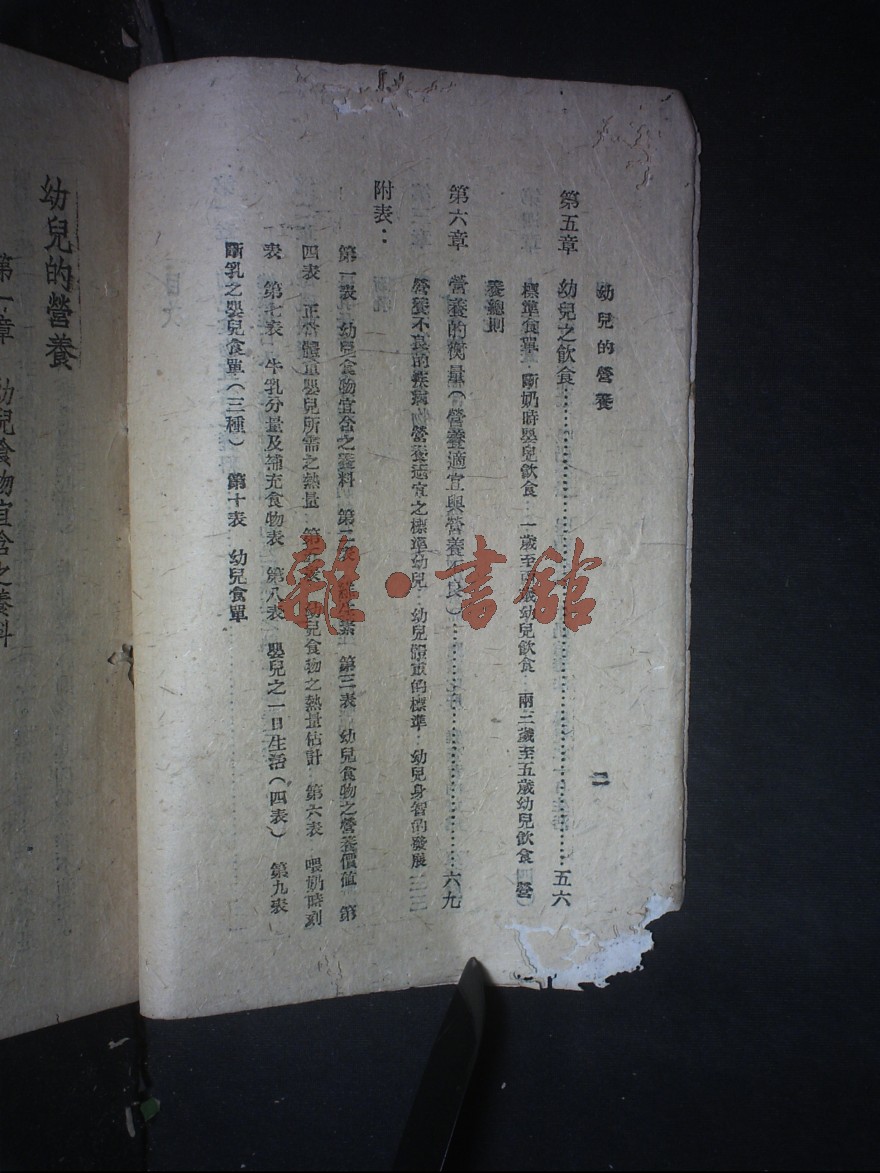 幼兒的營養
二
第五章　幼兒之飲食……五六
標準食單　斷奶時嬰兒飲食　一歲至 歲幼兒飲食　兩三歲至五歲幼兒飲食　營
養總則
第六章　營養的衡量（營養適宜與營養不良）……六九
營養不良的疾病　營養適宜之標準幼兒　幼兒體重的標準　幼兒身智的發展
附表：
第一表　幼兒食物宜含之養料　第二表　維生素　第三表　幼兒食物之營養價值　第
四表　正常體重嬰兒所需之熱量　第五表　幼兒食物之熱量估計　第六表　喂奶時刻
表　第七表　牛乳分量及補充食物表　第八表　嬰兒之一日生活（四表）　第九表
斷乳之嬰兒食單（三種）　第十表　幼兒食單
雜·書館
幼兒的營養
第一章　幼兒食物宜含之養料